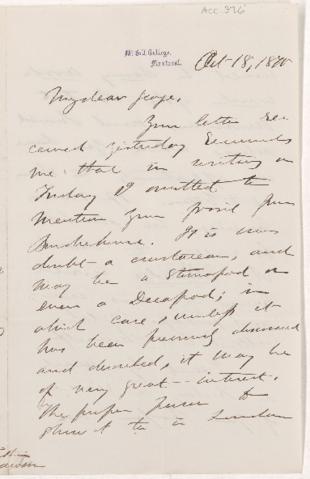 Acc 376
McGill College,
Montreal
Oct 18, 1870
My dear George,
Your letter re-
ceived yesterday reminds
me that in writing on
Friday I omitted to
mention your fossil from
It is no
doubt a crustacean, and
may be a Stomapod or
even a Decapod; in
which case, unless it
has been previously discovered
and described, it may be
of very great interest.
The proper person to
show it to in London